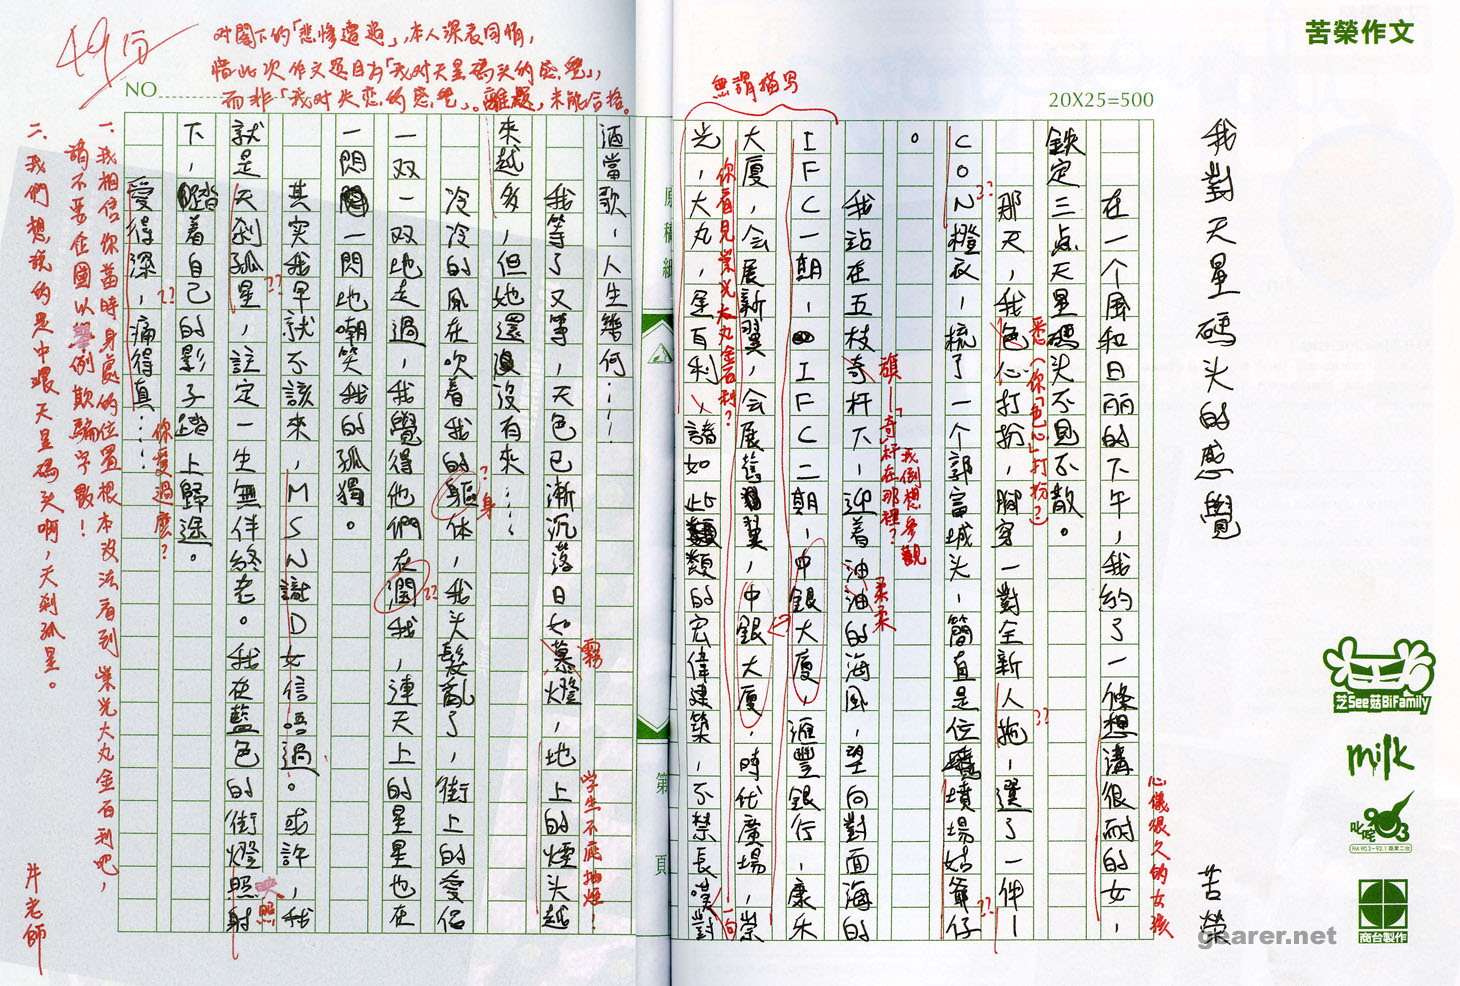 苦榮作文
我對天星碼头的感覺
苦榮
20X25=500
在一个風和日丽的下午，我約了一條想溝很耐的女，
鉄定三点天星碼头不見不散。
那天，我色心打扮，脚穿一對全新人拖，選了一件I
CON橙衣，梳了一个郭富城头，簡直是位墳場姑爺仔
。
我站在五枝奇杆下，迎着油油的海風，望向對面海的
IFC一朝，IFC二朝，中銀大廈，滙豐銀行，康乐
大厦，会展新翼，会展舊翼，中銀大厦，時代廣場，崇
光，大丸，金百利，諸如此類的宏偉建築，不禁長嘆對
酒當歌，人生幾何……
我等了又等，天色已漸沉落日如慕燈，地上的煙头越
來越多，但她還沒有來……
冷冷的風在吹着我的驅体，我头髮亂了，街上的愛侣
一双一双地走過，我覺得他們在潤我，連天上的星星也在
一閃一閃地嘲笑我的孤獨。
其实我早就不該來，MSN識D女信唔過。或許，我
就是天刹孤星，註定一生無伴終老。我在藍色的街燈照射
下，踏着自己的影子踏上歸途。
愛得深，痛得真……
原稿紙
第
頁
NO
49分
对閣下的「悲慘遭遇」，本人深表同情，
惜此次作文題目为「我对天星碼头的感覺」，
而非「我对失恋的感覺」。離題，未能合格。
心儀很久的女孩
悉（你「色心」打扮？）
??
??
??
旗—「奇」杆在那裡？
我倒想參觀
柔柔
無謂描写
你看見崇光大丸金百利？
一句
霧
学生不应抽煙！
？身
??
映照
??
??
你愛過麼？
一.我相信你當時身處的位置根本沒法看到崇光大丸金百利吧，
請不要企圖以舉例欺騙字數！
二.我們想說的是中環天星碼头啊，天刹孤星。
芝See菇BiFamily
milk
叱咤903
商台製作
gearer.net